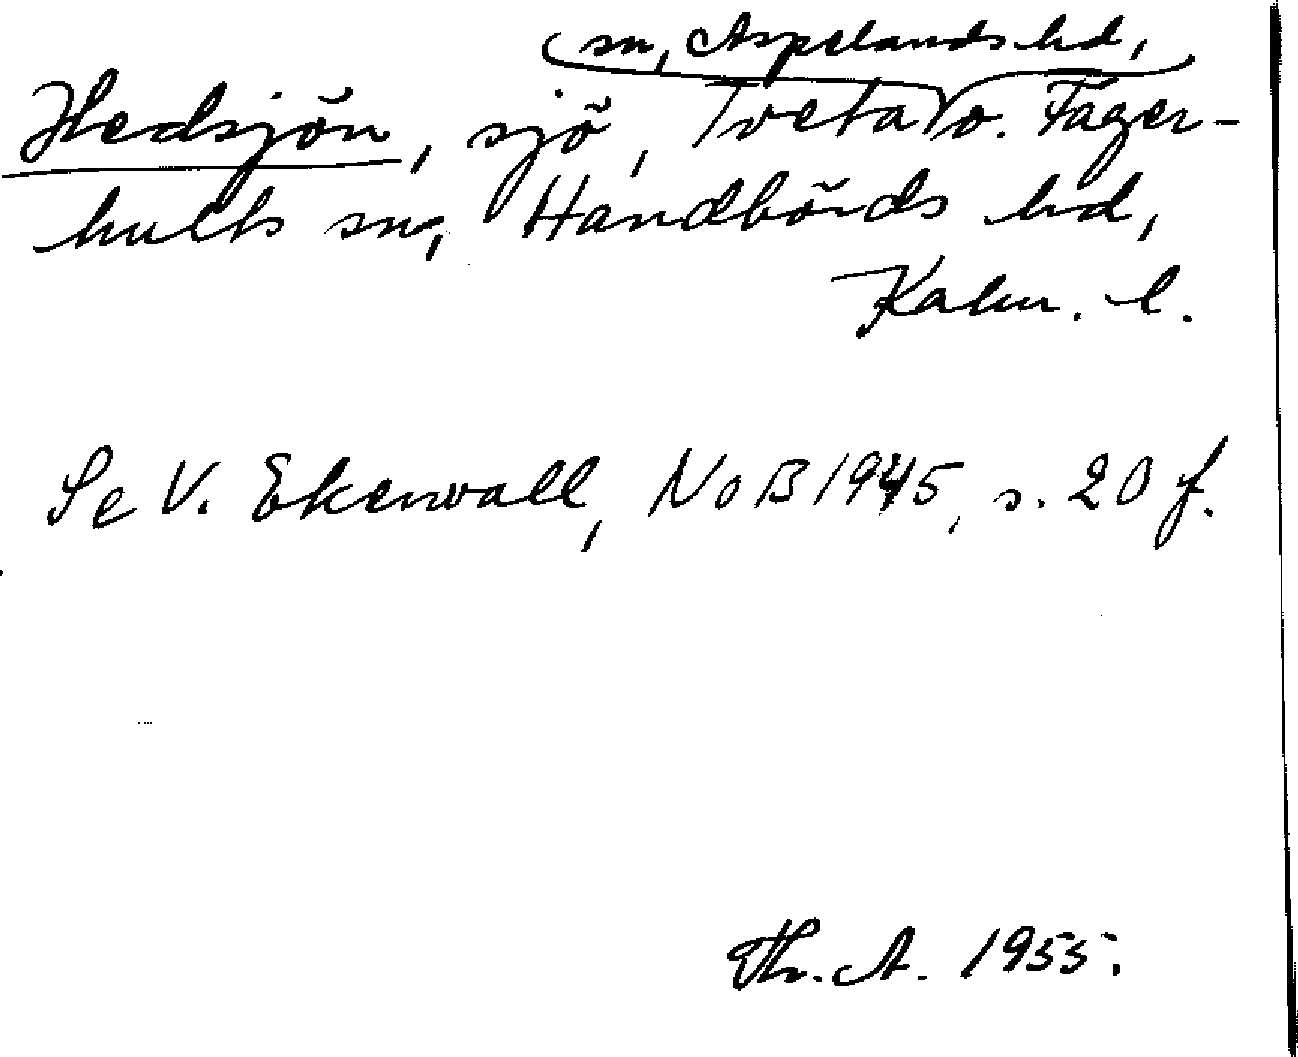 sn, Aspelands hd,
Hedsjön, sjö, Tveta o. Fager-
hults sn, Handbörds hd,
Kalm. l.
Se V. Ekenvall, NoB 1945, s. 20 f.
Th. A. 1955.